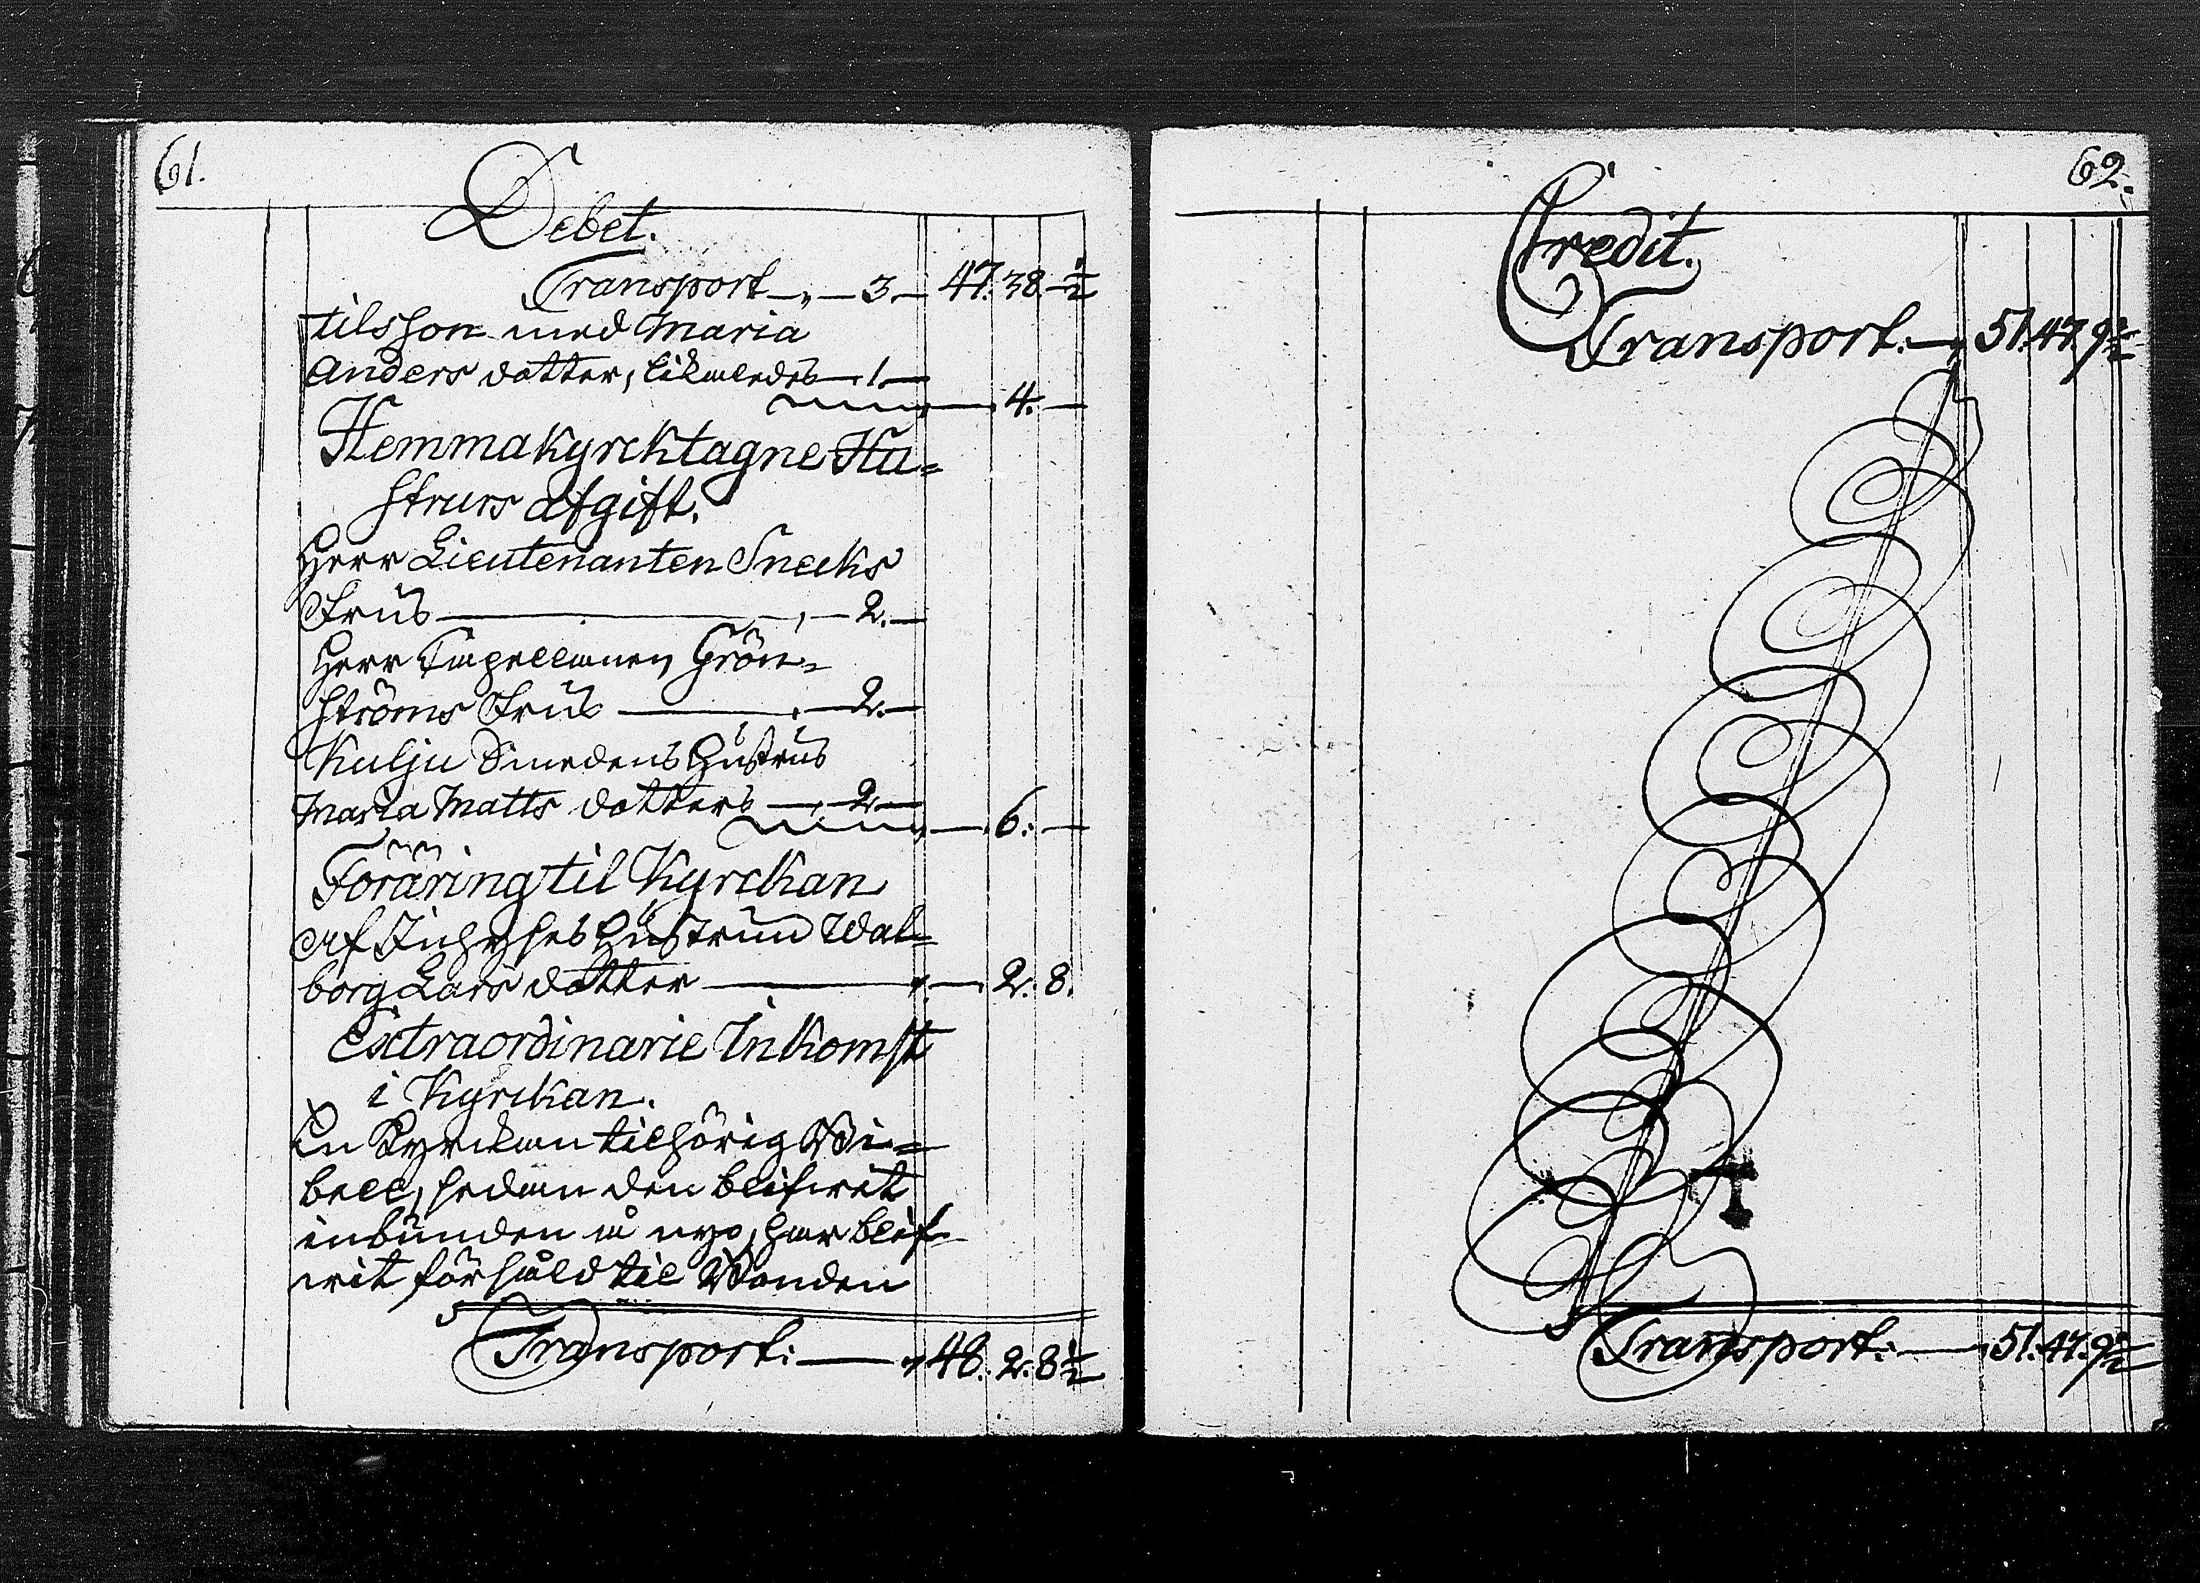 61.
Debet.
Transport — „ — 3 — 47. 38. — ½
tilsson med Maria
Anders dotter, likaledes — 1 —
— 4. —
Hemmakyrcktagne Hu=
strurs afgift.
Herr Lieutenanten Snecks
Frus — , — 2. —
Herr Capellanen Grön=
ströms Frus — , — 2. —
Kulju Smedens Hustrus
Maria Matts dotters — , — 2 —
— 6. —
Föräring til Kyrckan
Af Hustrun Wal=
borg Lars dotter — „ — 2. 8.
Extraordinarie Inkomst
i Kyrckan.
En Kyrckan tilhörig Bi=
bell, sedan den blifwit
inbunden å nyo, har blif=
wit försåld til Bonden
Transport: — „ 48. 2. 8 ½
62.
Credit.
Transport. — „ 51. 47. 9 ½
Transport: — „ 51. 47. 9 ½